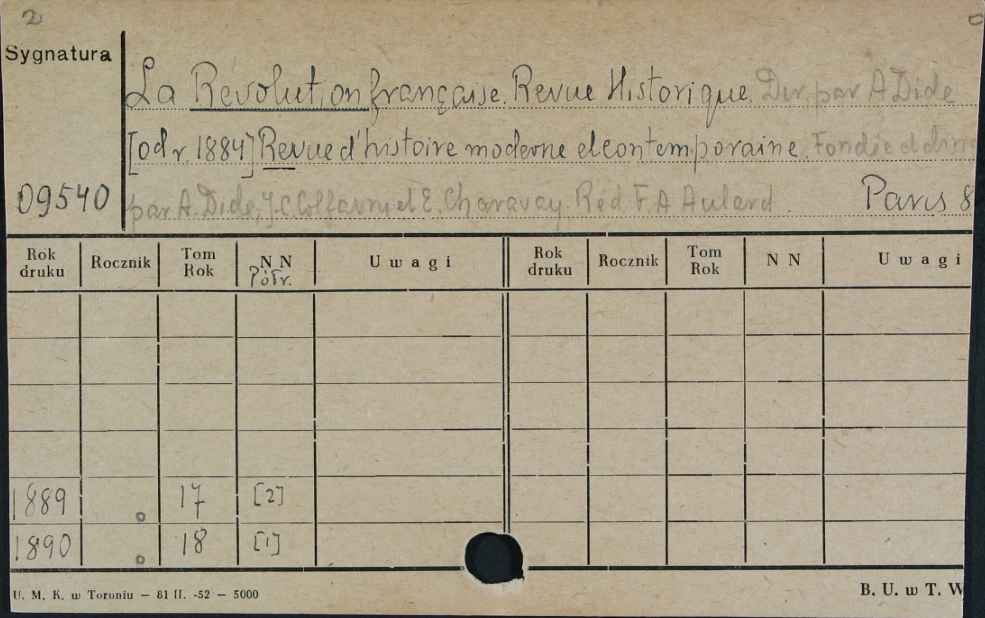 2
Sygnatura
La Révolution française. Revue Historique. Dir. par A Dide
[od r 1884] Revue d'histoire moderne et contemporaine. Fondée et
09540 par A. Dide, et E. Charavay. Réd F. A Aulard. Paris 8
Rok druku Rocznik Tom Rok NN Półr. Uwagi Rok druku Rocznik Tom Rok NN Uwagi
1889 17 [2]
1890 18 [1]
U. M. K. w Toruniu — 81 II. -52 — 5000 B. U. w T. W